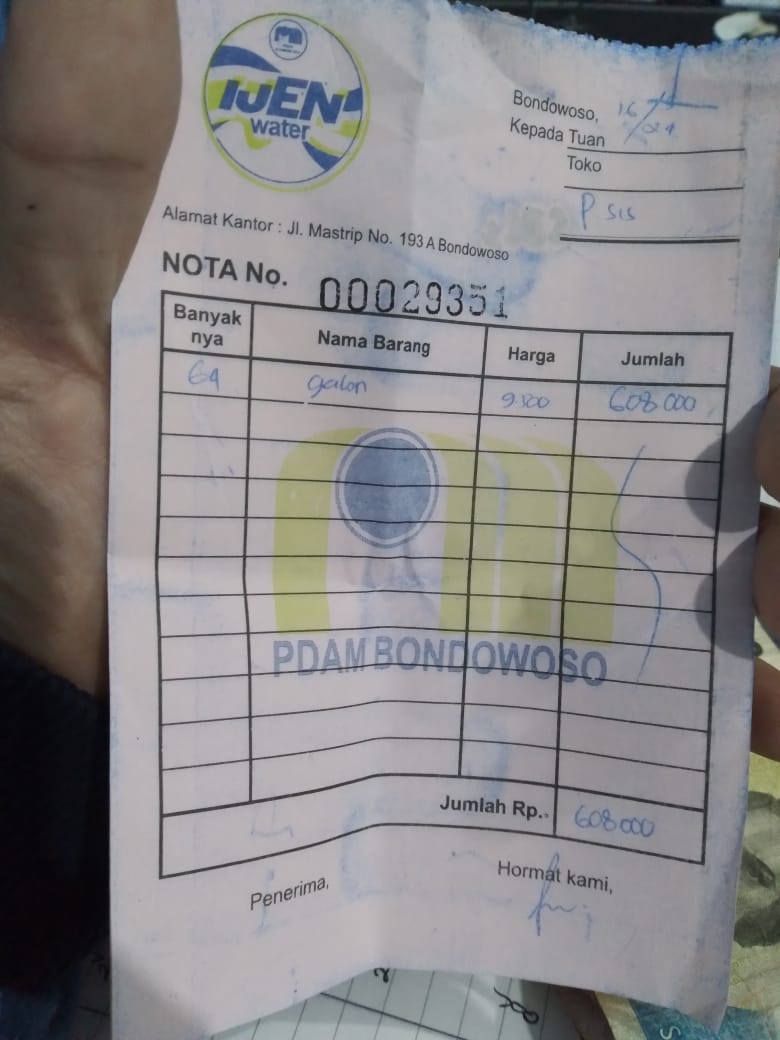 IJEN
water
Bondowoso, 16/ /24
Kepada Tuan
Toko
P sis
Alamat Kantor : Jl. Mastrip No. 193 A Bondowoso
NOTA No. 00029351
Banyak nya Nama Barang Harga Jumlah
64 galon 9.500 608.000
PDAM BONDOWOSO
Jumlah Rp.. 608.000
Penerima, Hormat kami,